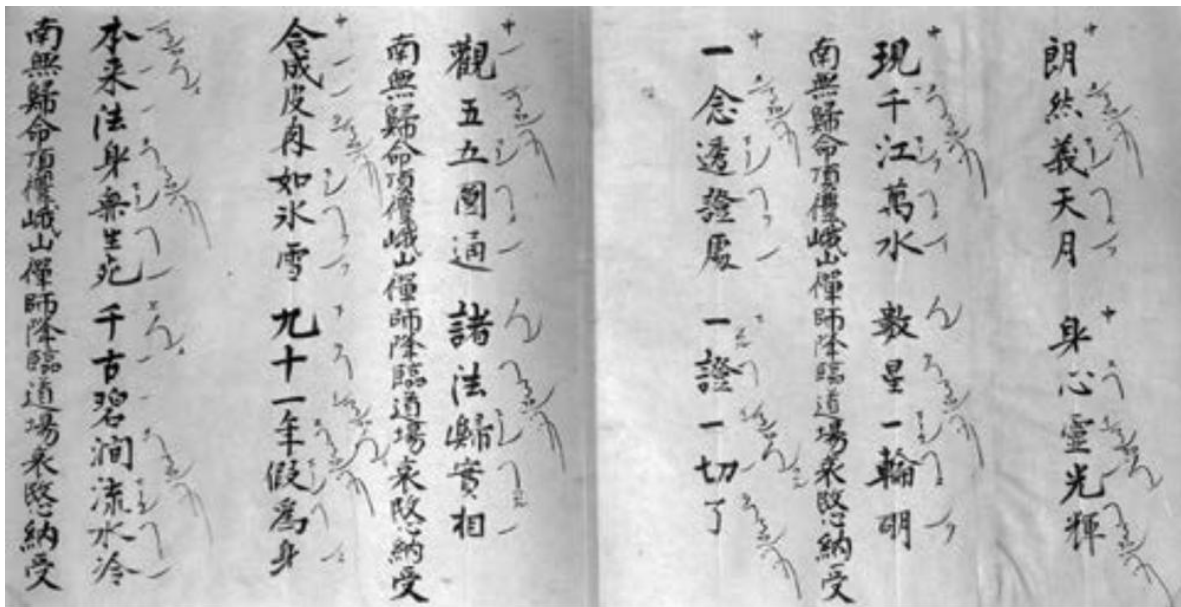 朗然義天月　身心靈光輝
現千江萬水　數星一輪明
南無歸命頂禮峨山禪師降臨道場哀愍納受
一念透證處　一證一切了
觀五五圓通　諸法歸實相
南無歸命頂禮峨山禪師降臨道場哀愍納受
合成皮肉如氷雪　九十一年假爲身
本来法身無生死　千古碧澗流水冷
南無歸命頂禮峨山禪師降臨道場哀愍納受